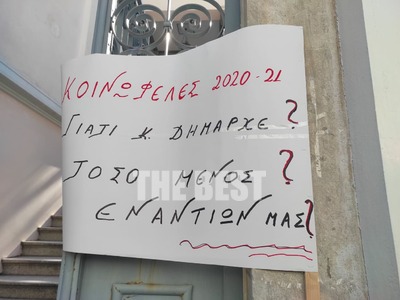 ΚΟΙΝΩΦΕΛΕΣ 2020-21
ΓΙΑΤΙ κ. ΔΗΜΑΡΧΕ?
ΤΟΣΟ ΜΕΝΟΣ?
THE BEST
ΕΝΑΝΤΙΩΝ ΜΑΣ?